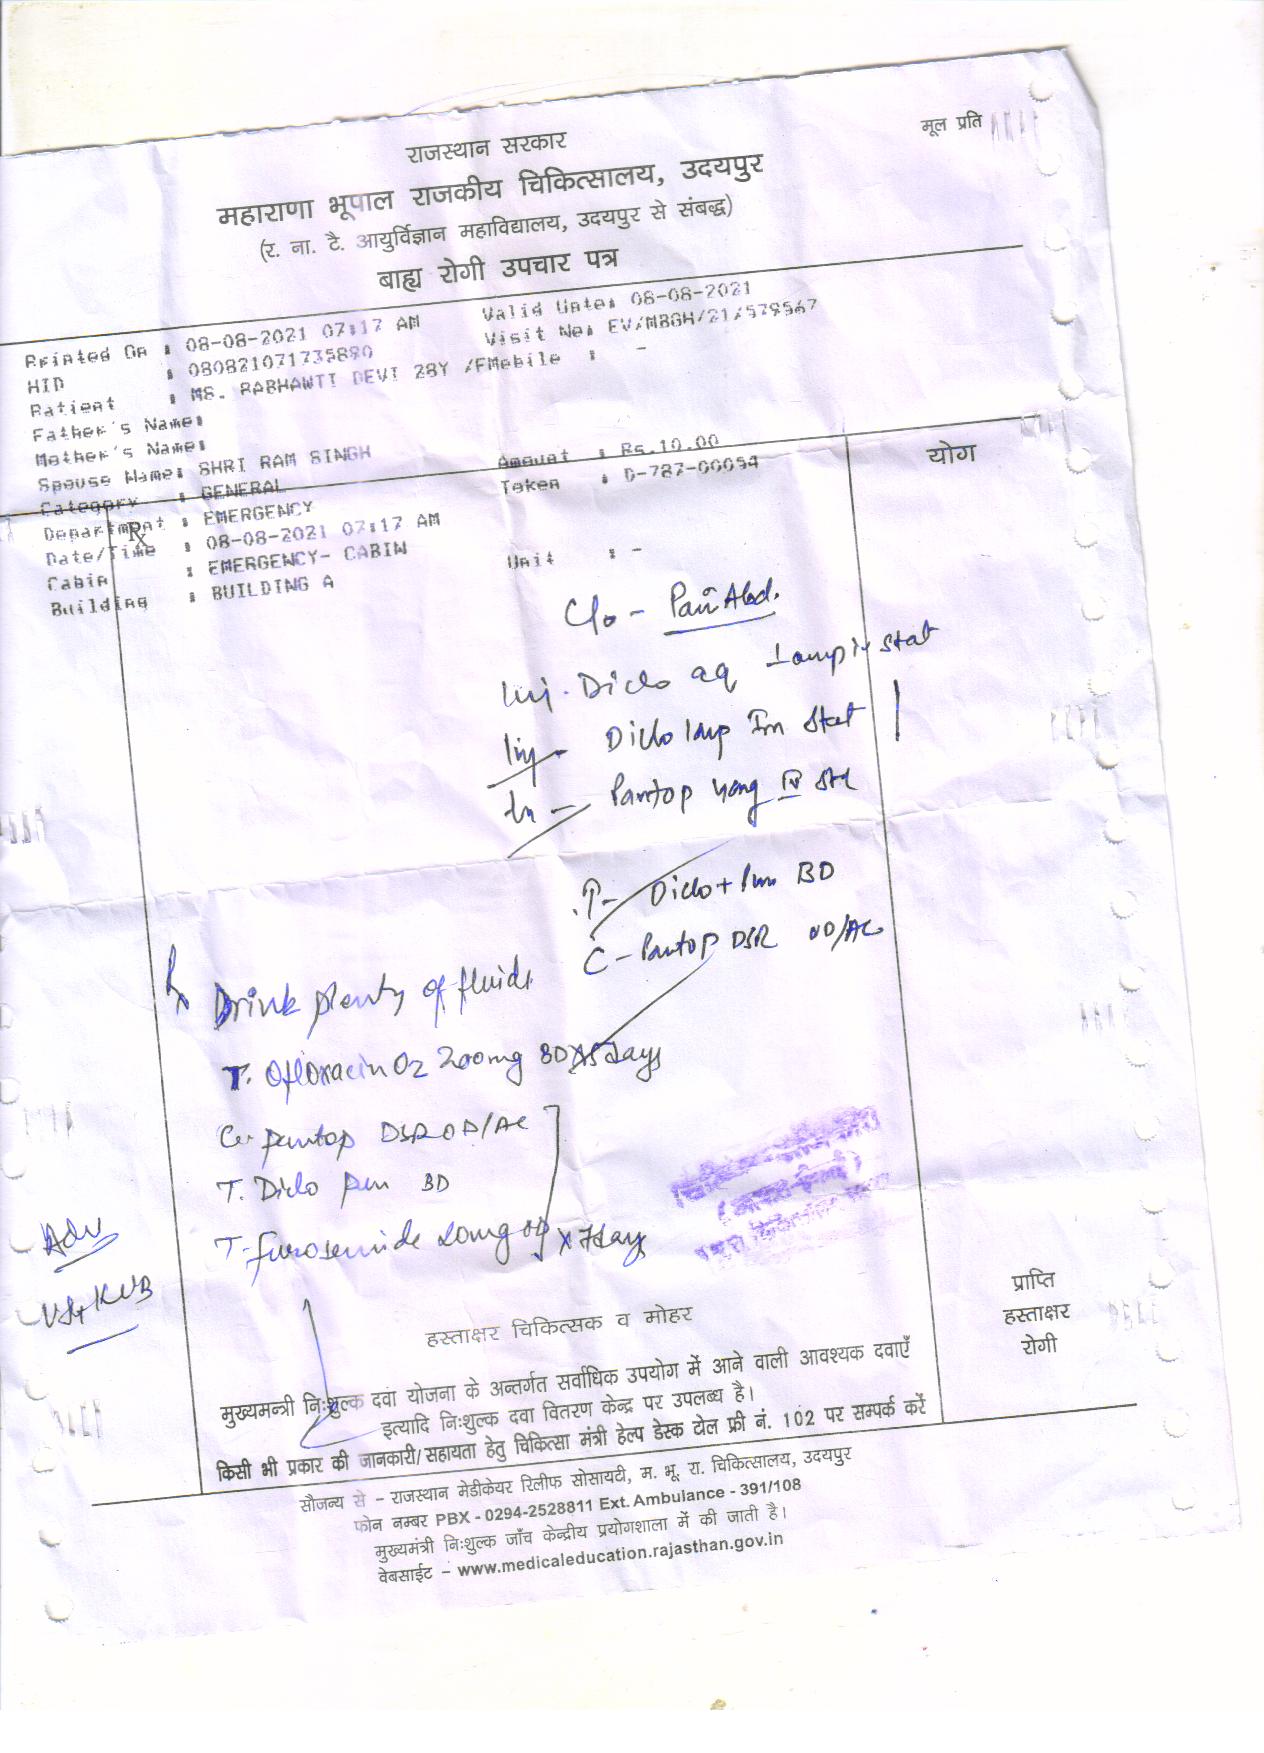 मूल प्रति
राजस्थान सरकार
महाराणा भूपाल राजकीय चिकित्सालय, उदयपुर
(र. ना. टै. आयुर्विज्ञान महाविद्यालय, उदयपुर से संबद्ध)
बाह्य रोगी उपचार पत्र
Printed On : 08-08-2021 07:17 AM Valid Upto: 08-08-2021
HID : 080821071735890 Visit No: EV/MBGH/21/579567
Patient : MS. RABHAWTI DEVI 28Y /F Mobile : -
Father's Name:
Mother's Name:
Spouse Name: SHRI RAM SINGH Amount : Rs.10.00
Category : GENERAL Token : D-787-00054
Department : EMERGENCY
Date/Time : 08-08-2021 07:17 AM
Cabin : EMERGENCY- CABIN Unit : -
Building : BUILDING A
योग
Rx
C/o - Pain Abd.
Inj. Diclo aq 1amp stat
Inj - Diclo 1amp Im stat
In - Pantop 40mg IV
T- Diclo + BD
C - Pantop DSR OD/AC
Rx Drink plenty of fluids
T. Ofloxacin OZ 200mg BD x 5days
Pantop DSR OD/AC
T. Diclo BD
T. furosemide x 7days
Adv
KUB
हस्ताक्षर चिकित्सक व मोहर
प्राप्ति
हस्ताक्षर
रोगी
मुख्यमन्त्री निःशुल्क दवा योजना के अन्तर्गत सर्वाधिक उपयोग में आने वाली आवश्यक दवाएँ
इत्यादि निःशुल्क दवा वितरण केन्द्र पर उपलब्ध है।
किसी भी प्रकार की जानकारी/सहायता हेतु चिकित्सा मंत्री हेल्प डेस्क टोल फ्री नं. 102 पर सम्पर्क करें
सौजन्य से - राजस्थान मेडीकेयर रिलीफ सोसायटी, म. भू. रा. चिकित्सालय, उदयपुर
फोन नम्बर PBX - 0294-2528811 Ext. Ambulance - 391/108
मुख्यमंत्री निःशुल्क जाँच केन्द्रीय प्रयोगशाला में की जाती है।
वेबसाईट - www.medicaleducation.rajasthan.gov.in